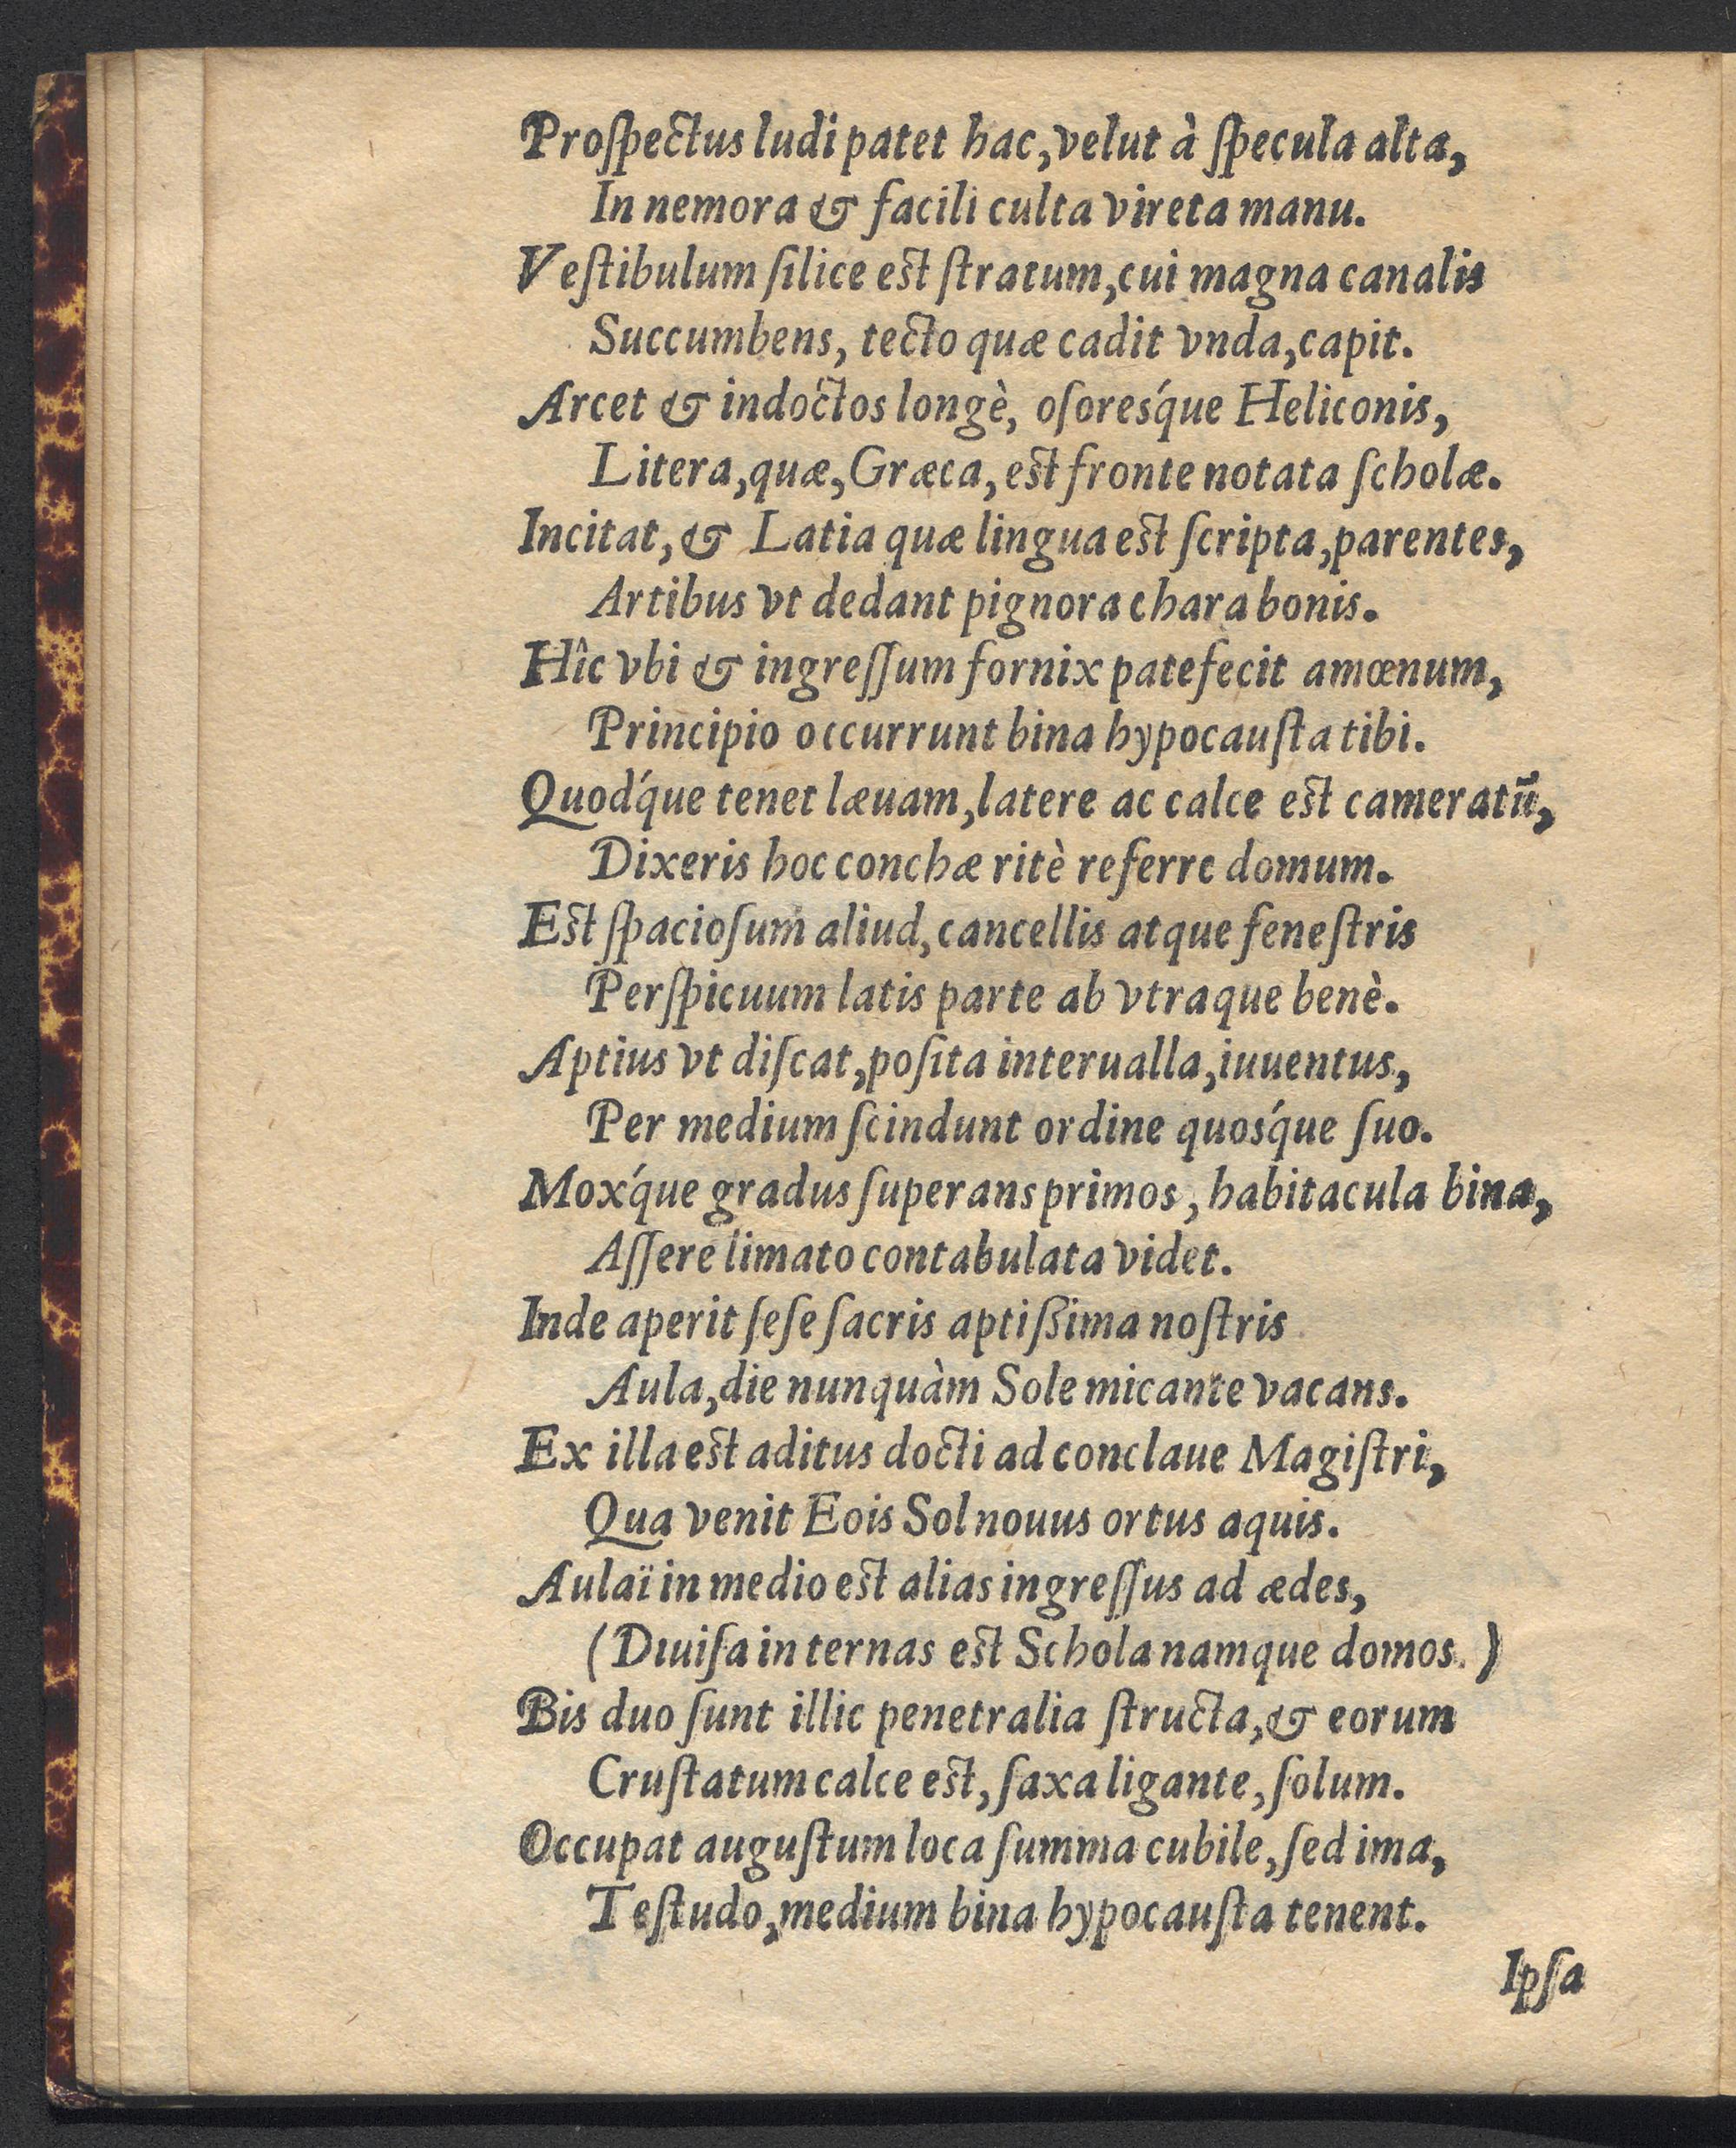 Proſpectus ludi patet hac, velut à ſpecula alta,
In nemora & facili culta vireta manu.
Veſtibulum ſilice eſt ſtratum, cui magna canalis
Succumbens, tecto quæ cadit vnda, capit.
Arcet & indoctos longè, oſoresq́ue Heliconis,
Litera, quæ, Græca, eſt fronte notata ſcholæ.
Incitat, & Latia quæ lingua eſt ſcripta, parentes,
Artibus vt dedant pignora chara bonis.
Hîc vbi & ingreſſum fornix patefecit amœnum,
Principio occurrunt bina hypocauſta tibi.
Quodq́ue tenet læuam, latere ac calce eſt cameratū,
Dixeris hoc conchæ ritè referre domum.
Eſt ſpacioſum aliud, cancellis atque feneſtris
Perſpicuum latis parte ab vtraque benè.
Aptius vt diſcat, poſita interualla, iuuentus,
Per medium ſcindunt ordine quosq́ue ſuo.
Moxq́ue gradus ſuperans primos, habitacula bina,
Aſſere limato contabulata videt.
Inde aperit ſeſe ſacris aptißima noſtris
Aula, die nunquàm Sole micante vacans.
Ex illa eſt aditus docti ad conclaue Magiſtri,
Qua venit Eois Sol nouus ortus aquis.
Aulaï in medio eſt alias ingreſſus ad ædes,
(Diuiſa in ternas eſt Schola namque domos.)
Bis duo ſunt illic penetralia ſtructa, & eorum
Cruſtatum calce eſt, ſaxa ligante, ſolum.
Occupat auguſtum loca ſumma cubile, ſed ima,
Teſtudo, medium bina hypocauſta tenent.
Ipſa